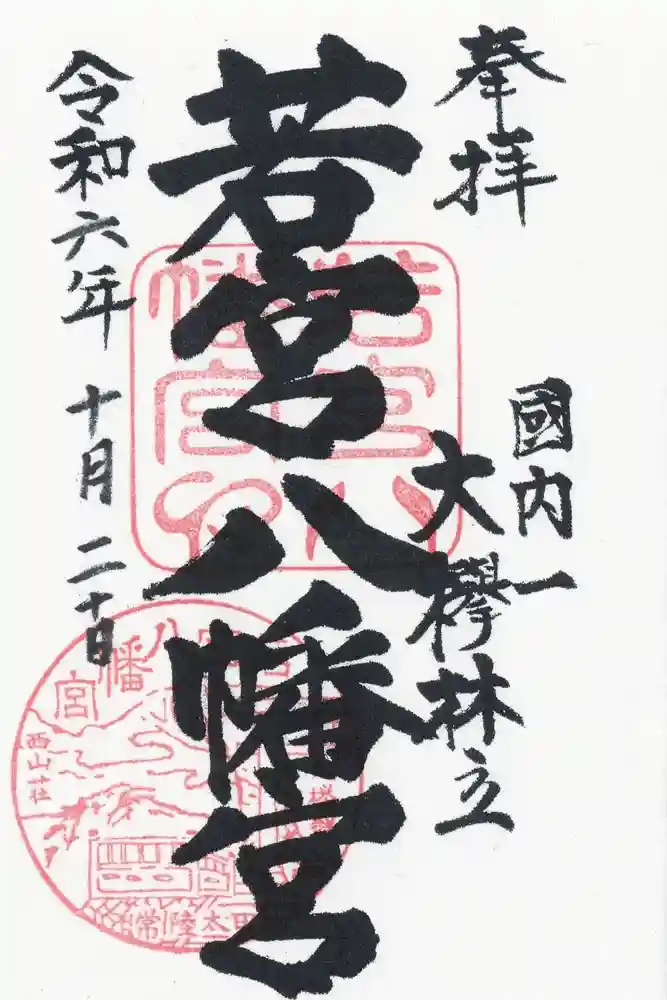 奉拝
國内一
大欅林立
若宮八幡宮
令和六年十月二十日
若宮八幡宮
宮八幡宮
西山社
常陸太田